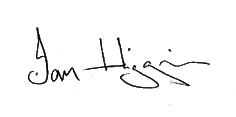 Ian Higgins